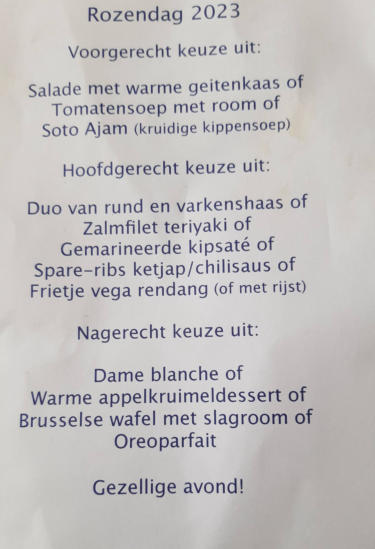 Rozendag 2023
Voorgerecht keuze uit:
Salade met warme geitenkaas of
Tomatensoep met room of
Soto Ajam (kruidige kippensoep)
Hoofdgerecht keuze uit:
Duo van rund en varkenshaas of
Zalmfilet teriyaki of
Gemarineerde kipsaté of
Spare-ribs ketjap/chilisaus of
Frietje vega rendang (of met rijst)
Nagerecht keuze uit:
Dame blanche of
Warme appelkruimeldessert of
Brusselse wafel met slagroom of
Oreoparfait
Gezellige avond!